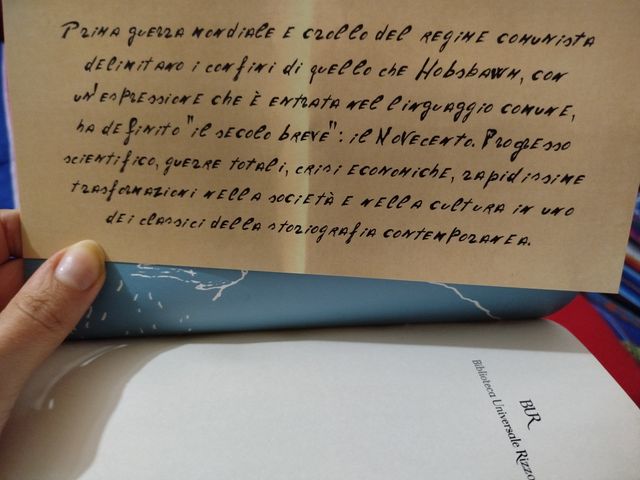 Prima guerra mondiale e crollo del regime comunista
delimitano i confini di quello che Hobsbawn, con
un'espressione che è entrata nel linguaggio comune,
ha definito "il secolo breve": il Novecento. Progresso
scientifico, guerre totali, crisi economiche, rapidissime
trasformazioni nella società e nella cultura in uno
dei classici della storiografia contemporanea.
BUR
Biblioteca Universale Rizzo